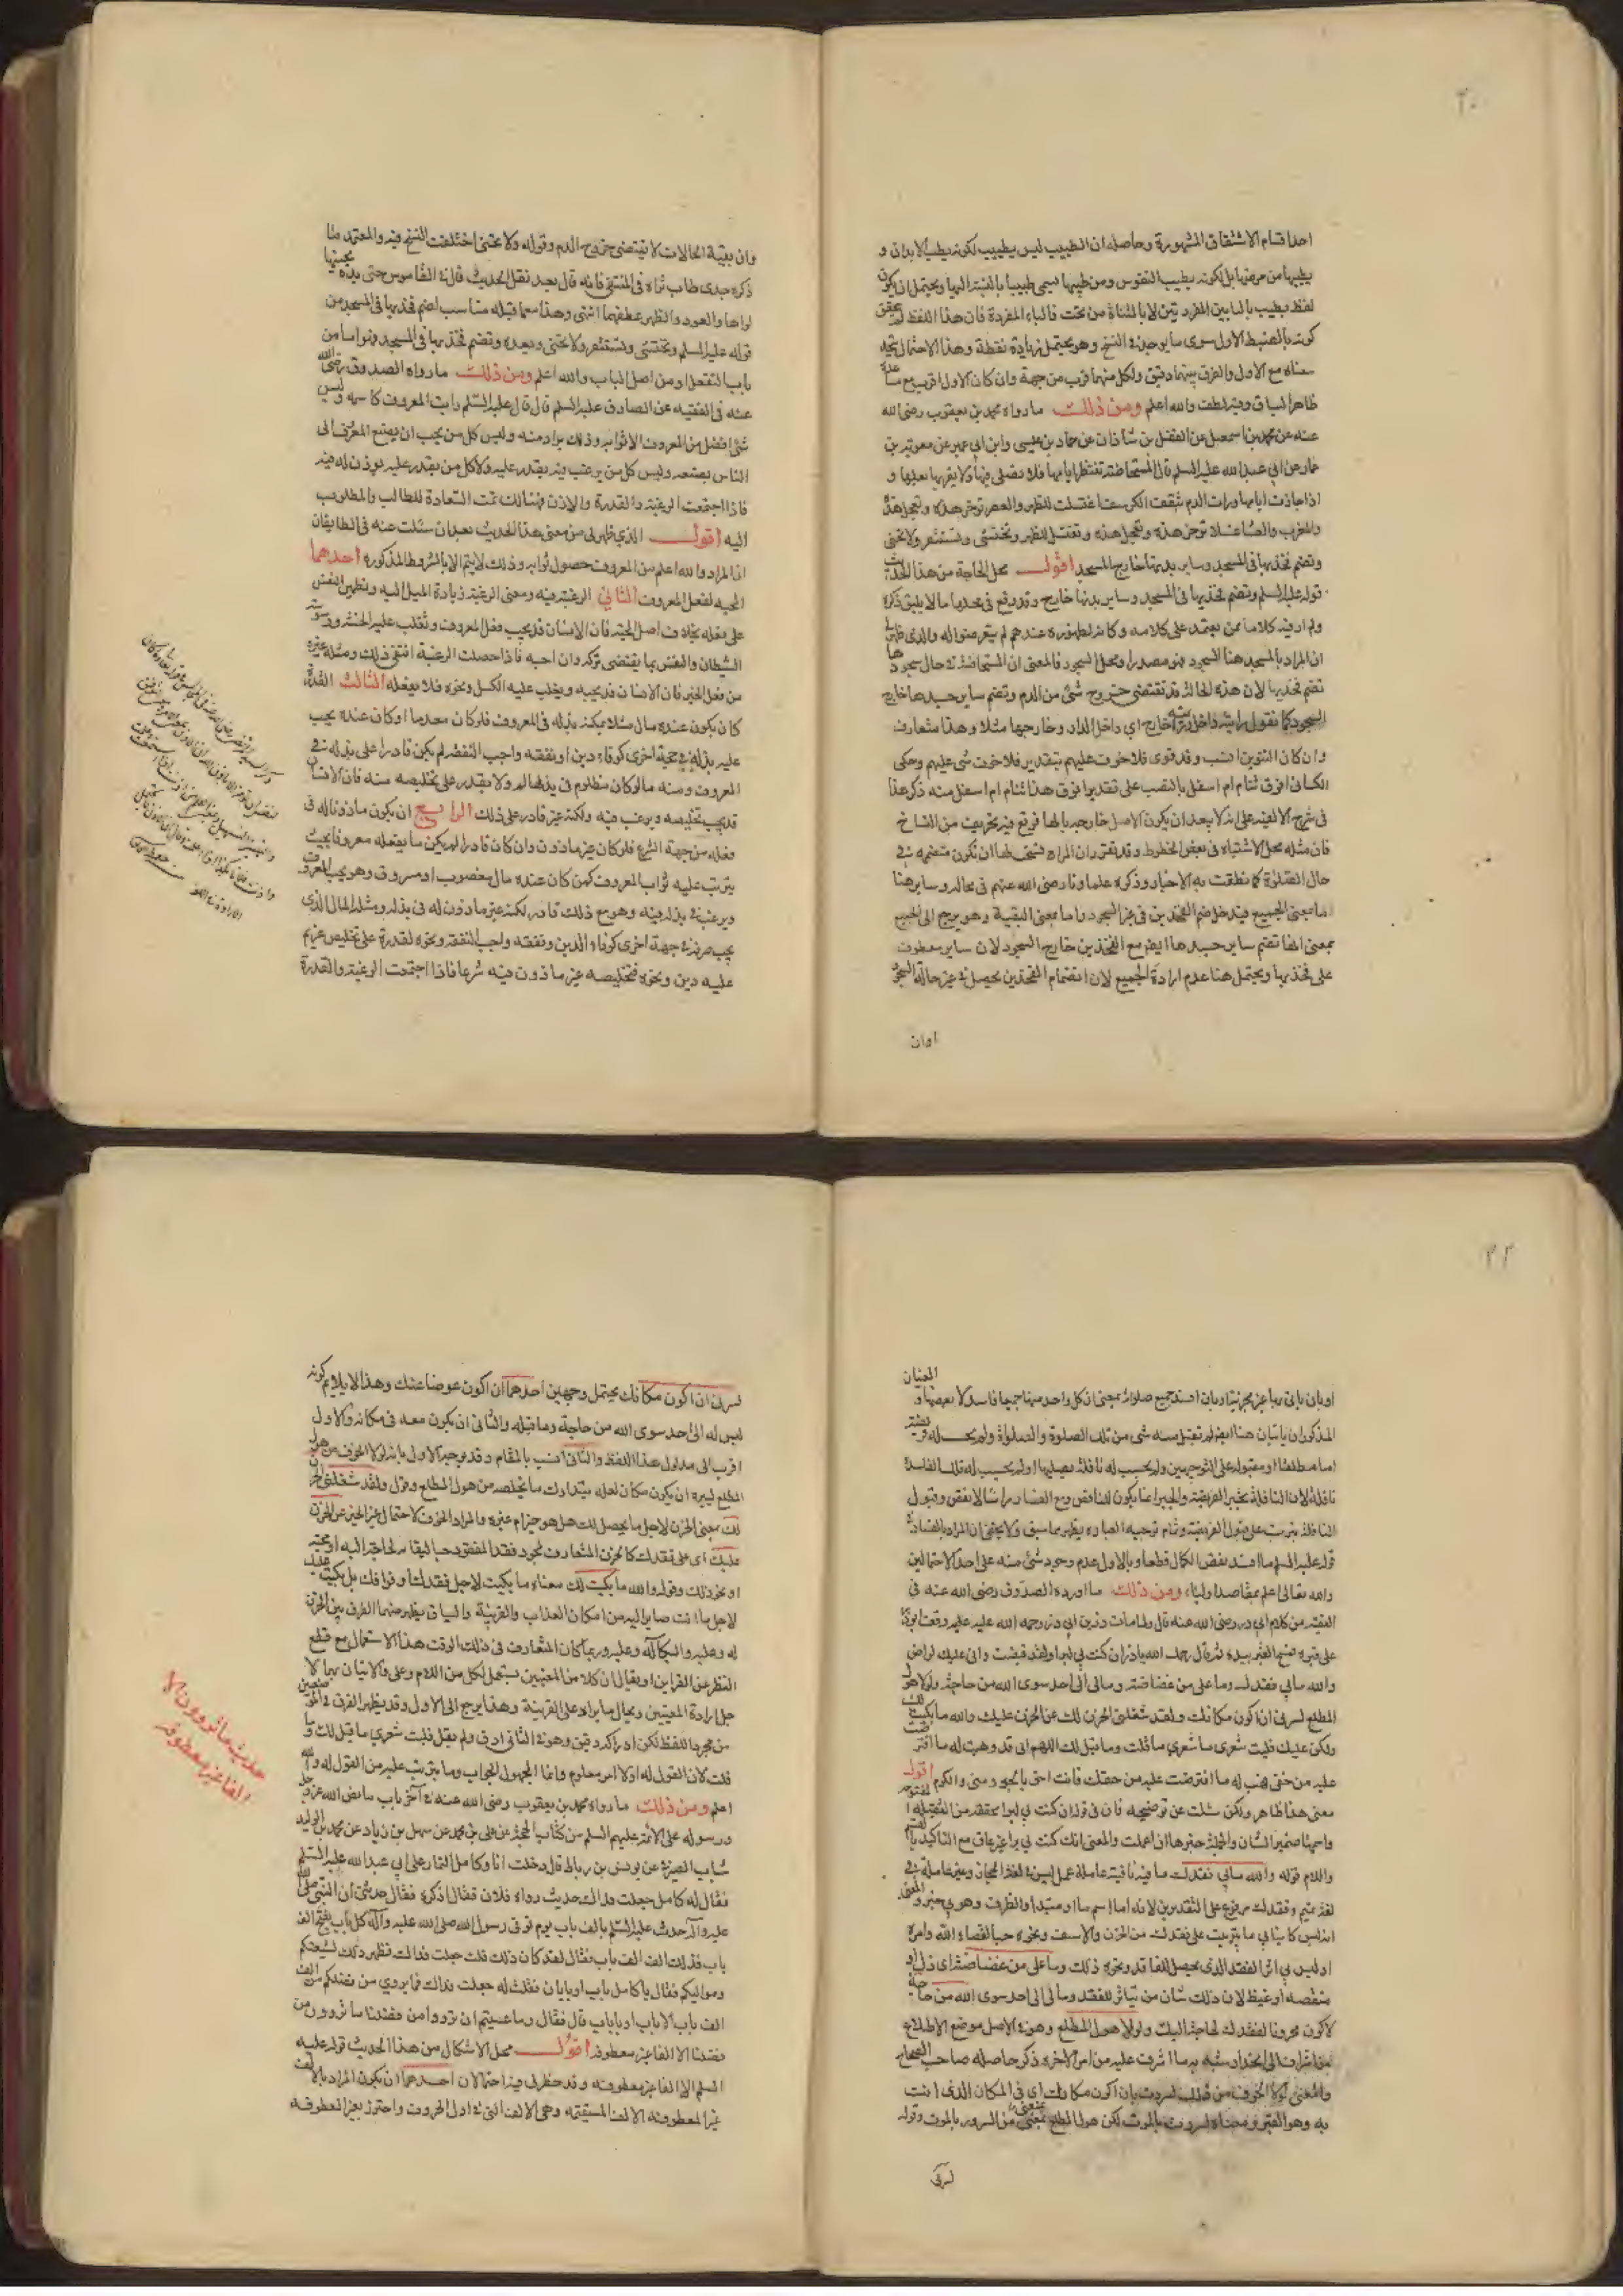 ٢٠
احد اقسام الاشتقاق المشهورة وحاصله ان الطبيب ليس بطبيب لكونه يطب الابدان و
يطيبها من مرضها بل لكونه يطيب النفوس ومن طيبها سمى طبيبا بالنسبة اليها ويحتمل ان يكون
لفظ يطيب بالبايين المفردتين لا بالمثناة من تحت فالباء المفردة فان هذا اللفظ لم يتحقق
كونه بالضبط الاول سوى ما يوجد في النسخ وهو يحتمل زيادة نقطة وهذا الاحتمال يتحد
معناه مع الاول والفرق بينهما دقيق ولكل منهما قرب من جهة وان كان الاول اقرب مع
ظاهر السياق وفيه لطف والله اعلم ومن ذلك ما رواه محمد بن يعقوب رضى الله
عنه عن محمد بن اسمعيل عن الفضل بن شاذان عن حماد بن عيسى وابن ابي عمير عن معوية بن
عمار عن ابي عبد الله عليه السلم قال المستحاضة تنتظر ايامها فلا تصلى فيها ولا يقربها بعلها و
اذا جازت ايامها ورات الدم يثقب الكرسف اغتسلت للظهر والعصر تؤخر هذه وتعجل هذه
وللمغرب والعشاء غسلا تؤخر هذه وتعجل هذه وتغتسل للظهر وتحتشى وتستثفر ولا تحنى
وتضم فخذيها في المسجد وساير بدنها خارج المسجد اقول محل الحاجة من هذا الحديث
قوله عليه السلم وتضم فخذيها في المسجد وساير بدنها خارج وقد وقع في عدها ما لا يليق ذكره
ولم ار فيه كلاما ممن يعتمد على كلامه وكانه لظهوره عندهم لم يتعرضوا له والذى ظهر لى
ان المراد بالمسجد هنا السجود فهو مصدر او محل السجود فالمعنى ان المستحاضة في حال سجودها
تضم فخذيها لان هذه الحالة قد تقتضى خروج شئ من الدم وتضم ساير جسدها خارج
السجود كما نقول رايته داخل بيته خارج اي داخل الدار وخارجها مثلا وهذا متعارف
وان كان التنوين انسب وقد قوى فلا خوف عليهم بتقدير فلا خوف شى عليهم وحكى
الكسائى افوق تنام ام اسفل بالنصب على تقدير افوق هذا تنام ام اسفل منه ذكر هذا
فى شرح الالفيه على انه لا يبعد ان يكون الاصل خارجه بالهاء فوقع فيه تحريف من النساخ
فان مثله محل الاشتباه فى بعض الخطوط وقد تقرر ان المراة يستحب لها ان تكون متضمة فى
حال الصلوة كما نطقت به الاخبار وذكره علماونا رضى الله عنهم فى محاله وساير هنا
اما بمعنى الجميع فيدخل ضم الفخذين فى غير السجود واما بمعنى البقية وهو يرجع الى الجميع
بمعنى انها تضم ساير جسدها ايضا مع الفخذين خارج السجود لان ساير معطوف
على فخذيها ويحتمل هنا عدم ارادة الجميع لان انضمام الفخذين يحصل فى غير حالة السجود
اوان
وان بقية الحالات لا يقتضى خروج الدم وقوله ولا تحنى اختلفت النسخ فيه والمعتمد ما
ذكره جدى طاب ثراه فى المنتقى فانه قال بعد نقل الحديث قال فى القاموس حنى يده يحنيها
لواها والعود والظهر عطفهما انتهى وهذا مما قبله مناسب لضم فخذيها فى المسجد من
قوله عليه السلم وتحتشى وتستثفر ولا تحنى وبعده وتضم فخذيها فى المسجد وهو اما من
باب التفعل او من اصل الباب والله اعلم ومن ذلك ما رواه الصدوق رضى الله
عنه فى الفقيه عن الصادق عليه السلم قال قال عليه السلم رايت المعروف كاسمه وليس
شئ افضل من المعروف الا ثوابه وذلك يراد منه وليس كل من يحب ان يصنع المعروف الى
الناس يصنعه وليس كل من يرغب فيه يقدر عليه ولا كل من يقدر عليه يوذن له فيه
فاذا اجتمعت الرغبة والقدرة والاذن فهنالك تمت السعادة للطالب والمطلوب
اليه اقول الذي ظهر لى من معنى هذا الحديث بعد ان سئلت عنه فى الطايفان
ان المراد والله اعلم من المعروف حصول ثوابه وذلك لا يتم الا بالشروط المذكورة احدها
المحبه لفعل المعروف الثاني الرغبة فيه ومعنى الرغبة زيادة الميل اليه وتطهير النفس
على فعله بخلاف اصل المحبة فان الانسان قد يحب فعل المعروف وتغلب عليه
الشيطان والنفس بما يقتضى تركه وان احبه فاذا حصلت الرغبة انتفى ذلك ومثله غيره
من فعل الخير فان الانسان قد يحبه ويغلب عليه الكسل ونحوه فلا يفعله الثالث القدرة
كان يكون عنده مال مثلا يمكنه بذله فى المعروف فلو كان معدما او كان عنده يجب
عليه بذله فى جهة اخرى كوفاء دين او نفقة واجب النفقة لم يكن قادرا على بذله فى
المعروف ومنه ما لو كان مظلوم فى يد ظالم ولا يقدر على تخليصه منه فان الانسان
قد يحب تخليصه ويرغب فيه ولكنه غير قادر على ذلك الرابع ان يكون ماذونا له فى
فعله من جهة الشرع فلو كان غير ماذون وان كان قادرا لم يكن ما يفعله معروفا بحيث
يترتب عليه ثواب المعروف كمن كان عنده مال مغصوب او مسروق وهو يحب المعروف
ويرغب فى بذله فيه وهو مع ذلك قادر لكنه غير ماذون له فى بذله ومثله المال الذى
يجب صرفه فى جهة اخرى كوفاء الدين ونفقة واجب النفقة ونحوه لقدرة على تخليص غريم
عليه دين ونحوه فتخليصه غير ماذون فيه شرعا فاذا اجتمعت الرغبة والقدرة
٢٢
المعنيان
او بان ياتى بها غير مجزية او بان افسد جميع صلواته بمعنى ان كل واحد منها جميعها فاسد لا بعضها و
المذكوران ياتيان هنا ايضا لم تقبل منه شى من تلك الصلوة والصلوة ولم يحسب له
اما مطلقا او مقبوله على التوجيهين ولم يحسب له نافلة يصليها او لم يحسب له تلك الفاسدة
نافلة لان النافلة تجبر الفريضة والجبر انما يكون للناقص ومع الفساد راسا لا نقص وقبول
النافلة يترتب على قبول الفريضة وتمام توجيه العباره يظهر مما سبق ولا يخفى ان المراد بالفساد فى
قوله عليه السلم ما افسد نقص الكمال قطعا وبالاول عدم وجود شئ منه على احد الاحتمالين
والله تعالى اعلم بمقاصد اوليائه ومن ذلك ما اورده الصدوق رضى الله عنه فى
الفقيه من كلام ابي ذر رضى الله عنه قال ولما مات ذر بن ابي ذر رحمه الله عليه وقف ابو ذر
على قبره فمسح القبر بيده ثم قال رحمك الله يا ذر ان كنت بي لبرا ولقد قبضت وانى عليك لراض
والله ما بي فقدك وما على من غضاضة ومالى الى احد سوى الله من حاجة ولولا هول
المطلع لسرنى ان اكون مكانك ولقد شغلنى الحزن لك عن الحزن عليك والله ما بكيت لك
ولكن عليك فليت شعرى ما قلت وما قيل لك اللهم انى قد وهبت له ما افترضت
عليه من حقى فهب له ما افترضت عليه من حقك فانت احق بالجود منى والكرم اقول
معنى هذا ظاهر ولكن سئلت عن توضيحه فان فى قوله ان كنت بي لبرا مخففه من الثقيلة
واسمها ضمير الشان والجملة خبرها ان اعملت والمعنى انك كنت بي برا غير عاق مع التاكيد
واللام قوله والله ما بي فقدك ما فيه نافية عاملة عمل ليس فى لغة الحجاز وغير عاملة فى
لغة تميم وفقدك مرفوع على التقديرين لانه اما اسم ما او مبتدا والظرف وهو بي خبر والمعنى
انه ليس كائنا بي ما يترتب على فقدك من الحزن والاسف ونحوه حبا لقضاء الله وامره
او ليس بي اثر الفقد الذى يحصل للفاقد ونحوه ذلك وما على من غضاضة اى ذل او
منقصه او غيظ لان ذلك شان من يتاثر للفقد ومالى الى احد سوى الله من حاجة
لاكون محزونا لفقدك لحاجة اليك ولولا هول المطلع وهو فى الاصل موضع الاطلاع
من اشراف الى انحدار شبه به ما اشرف عليه من امر الاخرة ذكر حاصله صاحب الصحاح
والمعنى لولا الخوف من ذلك لسررت بان اكون مكانك اى فى المكان الذى انت
به وهو القبر ومعناه لسررت بالموت لكن هول المطلع يمنعنى من السرور بالموت وقوله
لسرنى
لسرنى ان اكون مكانك يحتمل وجهين احدهما ان اكون عوضا عنك وهذا لا يلايم كونه
ليس له الى احد سوى الله من حاجة وما قبله والثانى ان يكون معه فى مكانه والاول
اقرب الى مدلول هذا اللفظ والثانى انسب بالمقام وقد يوجه الاول بانه لولا الخوف من هول
المطلع ليسره ان يكون مكانه لعله يتدارك ما يخلصه من هول المطلع وقوله ولقد شغلنى الحزن
لك بمعنى الحزن لاجل ما يحصل لك هل هو خير ام غيره والمراد الخوف لاحتمال غير الخير عن الحزن
عليك اى على فقدك كالحزن المتعارف لمجرد فقد المفقود حبا لبقائه لحاجة اليه او محبته
او نحو ذلك وقوله والله ما بكيت لك معناه ما بكيت لاجل فقدك او فراقك بل بكيت عليك
لاجل ما انت صاير اليه من امكان العذاب والقرينة والسياق يظهر منهما الفرق بين الحزن
له وعليه والبكا له وعليه وربما كان المتعارف فى ذلك الوقت هذا الاستعمال مع قطع
النظر عن القراين او يقال ان كلا من المعنيين يستعمل لكل من اللام وعلى فالاتيان بهما لا
جل ارادة المعنيين ويحال ما يراد على القرينة وهذا يرجع الى الاول وقد يظهر الفرق فى الموضعين
من مجرد اللفظ لكن ادراكه دقيق وهو فى الثانى ادق ولم يقل فليت شعرى ما قيل لك وما
قلت لان القول له اولا امر معلوم وانما المجهول الجواب وما يترتب عليه من القول له والله
اعلم ومن ذلك ما رواه محمد بن يعقوب رضى الله عنه فى آخر باب ما نص الله عز وجل
ورسوله على الائمة عليهم السلم من كتاب الحجة عن على بن محمد عن سهل بن زياد عن محمد بن الوليد
شباب الصيرفى عن يونس بن رباط قال دخلت انا وكامل التمار على ابي عبد الله عليه السلم
فقال له كامل جعلت فداك حديث رواه فلان فقال اذكره فقال حدثنى ان النبى صلى الله
عليه وآله حدث عليا عليه السلم بالف باب يوم توفى رسول الله صلى الله عليه وآله كل باب يفتح الف
باب فذلك الف الف باب فقال لقد كان ذلك قلت جعلت فداك فظهر ذلك لشيعتكم
ومواليكم فقال يا كامل باب او بابان فقلت له جعلت فداك فما يروى من فضلكم من الف
الف باب الا باب او بابان قال فقال وما عسيتم ان ترووا من فضلنا ما تروون من
فضلنا الا الفا غير معطوفة اقول محل الاشكال من هذا الحديث قوله عليه
السلم الا الفا غير معطوفة وقد خطر لى فيه احتمالان احدهما ان يكون المراد بالالف
غير المعطوفة الالف المستقيمة وهى الالف التى فى اول الحروف واحترز بغير المعطوفة
حديث ما تروون الا
الفا غير معطوفة